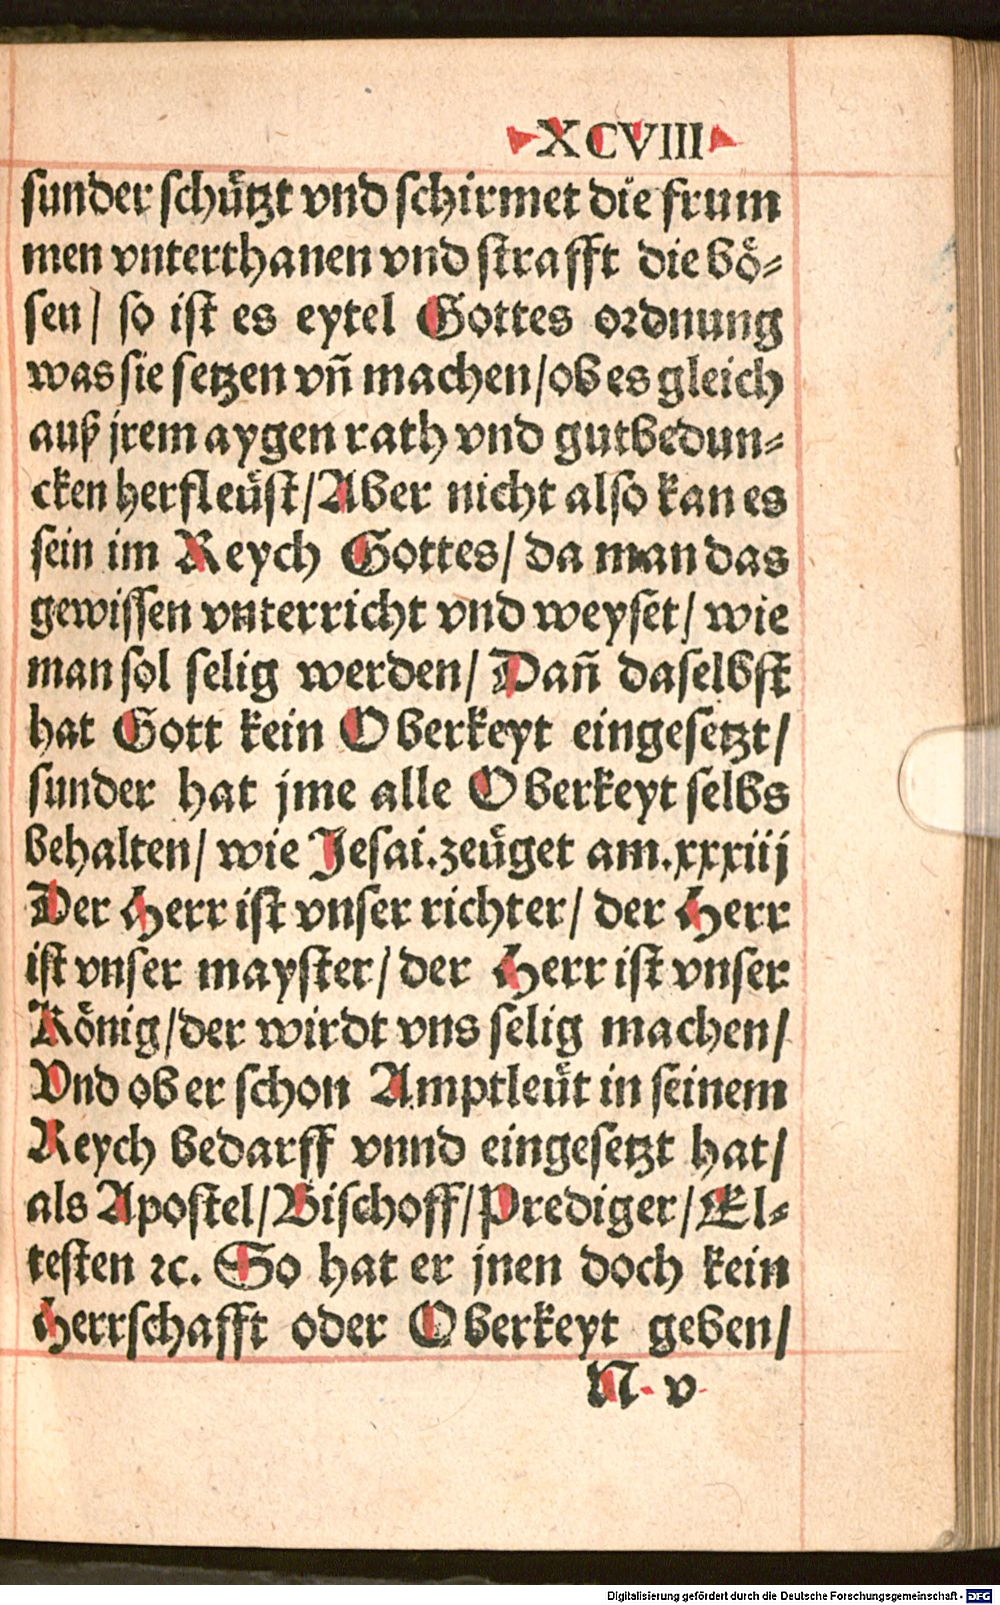 XCVIII
sunder schützt vnd schirmet die frum
men vnterthanen vnd strafft die bö-
sen/ so ist es eytel Gottes ordnung
was sie setzen vñ machen/ob es gleich
auß jrem aygen rath vnd gutbedun-
cken herfleüst/Aber nicht also kan es
sein im Reych Gottes/ da man das
gewissen vnterricht vnd weyset/ wie
man sol selig werden/ Dañ daselbst
hat Gott kein Oberkeyt eingesetzt/
sunder hat jme alle Oberkeyt selbs
behalten/ wie Jesai.zeüget am.xxxiij
Der Herr ist vnser richter/ der Herr
ist vnser mayster/ der Herr ist vnser
König/der wirdt vns selig machen/
Vnd ob er schon Amptleüt in seinem
Reych bedarff vnnd eingesetzt hat/
als Apostel/Bischoff/Prediger/El-
testen ꝛc. So hat er jnen doch kein
Herrschafft oder Oberkeyt geben/
N v
Digitalisierung gefördert durch die Deutsche Forschungsgemeinschaft - DFG